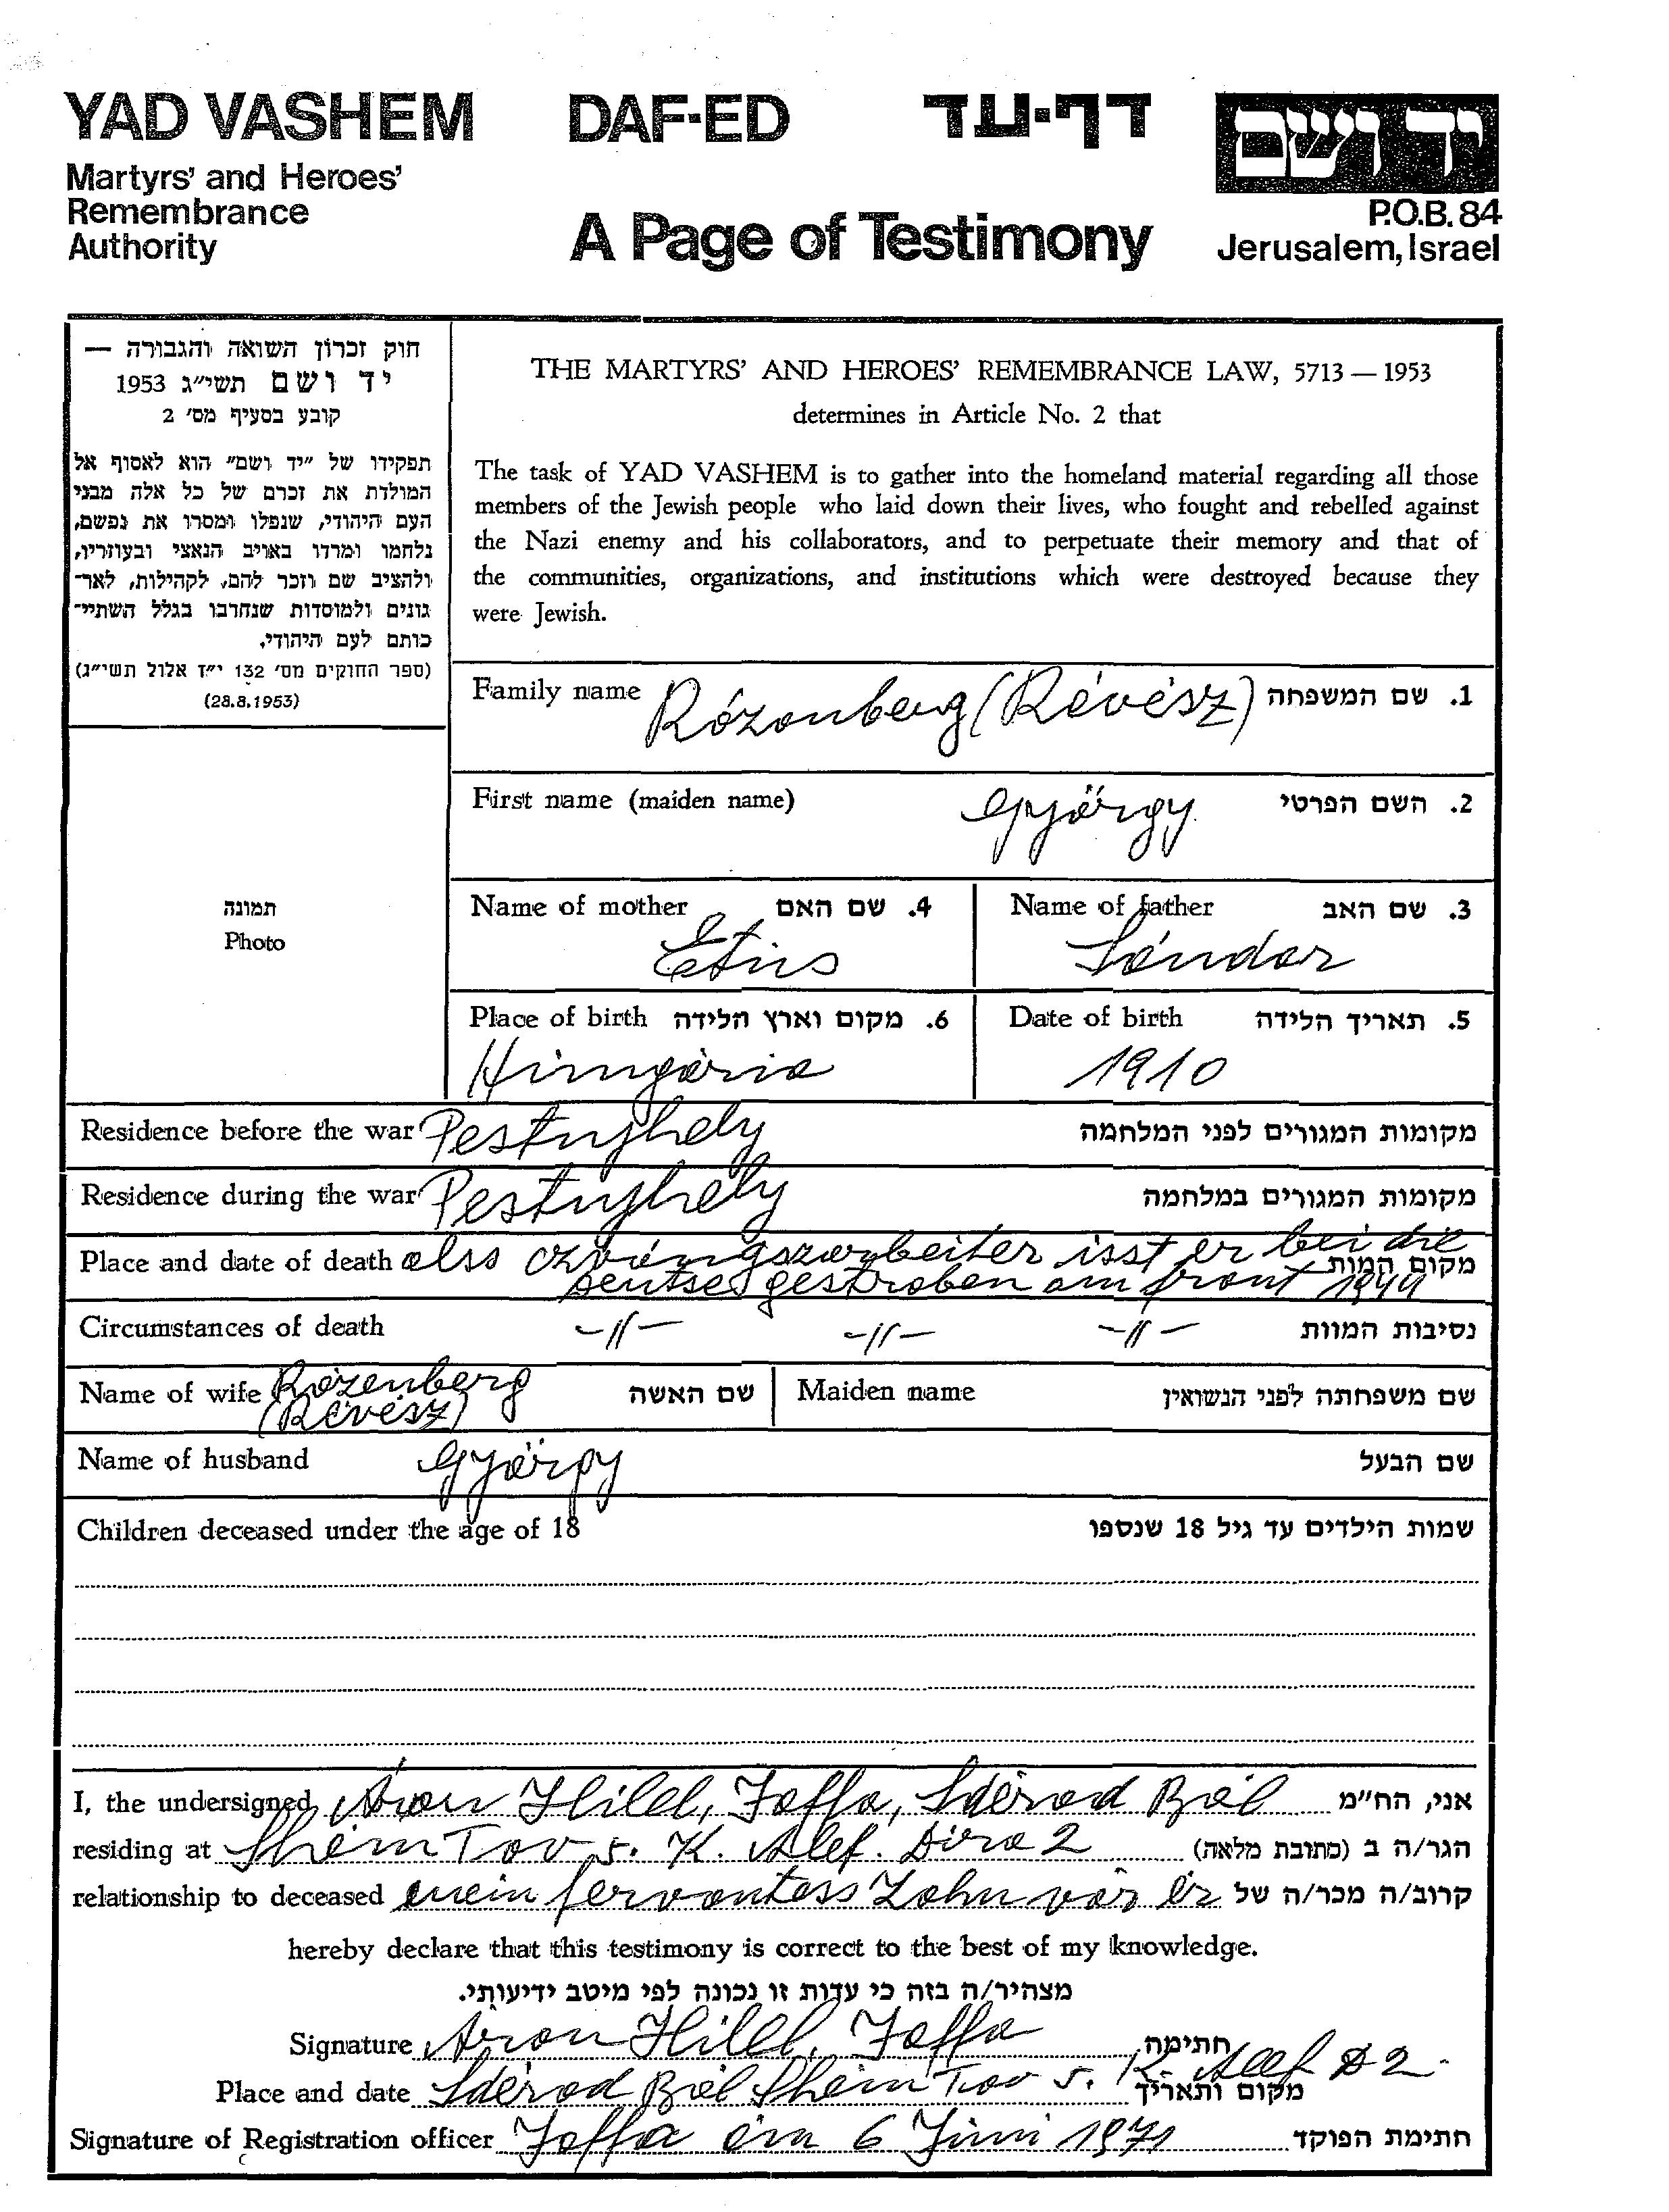 YAD VASHEM DAF-ED דף-עד יד ושם
Martyrs' and Heroes'
Remembrance
Authority
A Page of Testimony
P.O.B. 84
Jerusalem, Israel
חוק זכרון השואה והגבורה —
יד ושם תשי״ג 1953
קובע בסעיף מס׳ 2
תפקידו של ״יד ושם״ הוא לאסוף אל
המולדת את זכרם של כל אלה מבני
העם היהודי, שנפלו ומסרו את נפשם,
נלחמו ומרדו באויב הנאצי ובעוזריו,
ולהציב שם וזכר להם, לקהילות, לאר־
גונים ולמוסדות שנחרבו בגלל השתיי־
כותם לעם היהודי.
(ספר החוקים מס׳ 132 י״ז אלול תשי״ג)
(28.8.1953)
THE MARTYRS' AND HEROES' REMEMBRANCE LAW, 5713 — 1953
determines in Article No. 2 that
The task of YAD VASHEM is to gather into the homeland material regarding all those
members of the Jewish people who laid down their lives, who fought and rebelled against
the Nazi enemy and his collaborators, and to perpetuate their memory and that of
the communities, organizations, and institutions which were destroyed because they
were Jewish.
Family name Rózonberg (Révész) 1. שם המשפחה
First name (maiden name) György 2. השם הפרטי
תמונה
Photo
Name of mother 4. שם האם Name of father 3. שם האב
Sándor
Place of birth 6. מקום וארץ הלידה Date of birth 5. תאריך הלידה
Hungária 1910
Residence before the war Pestujhely מקומות המגורים לפני המלחמה
Residence during the war Pestujhely מקומות המגורים במלחמה
Place and date of death alss czvángszarbeiter isst er bei die מקום המות
gestroben am front 1944
Circumstances of death —〃— —〃— —〃— נסיבות המוות
Name of wife Rózenberg (Révész) שם האשה Maiden name שם משפחתה לפני הנשואין
Name of husband György שם הבעל
Children deceased under the age of 18 שמות הילדים עד גיל 18 שנספו
I, the undersigned Áron Hilel, Joffa, Sdérod Bál אני, הח״מ
residing at Shém Tov 5. K. Alef. Dira 2 הגר/ה ב (כתובת מלאה)
relationship to deceased mein fervontess Zohn vár ér קרוב/ה מכר/ה של
hereby declare that this testimony is correct to the best of my knowledge.
מצהיר/ה בזה כי עדות זו נכונה לפי מיטב ידיעותי.
Signature Áron Hilel, Joffa חתימה
Place and date Sdérod Bál Shém Tov 5. K. Alef D 2. מקום ותאריך
Signature of Registration officer Joffa ém 6 Juni 1971 חתימת הפוקד